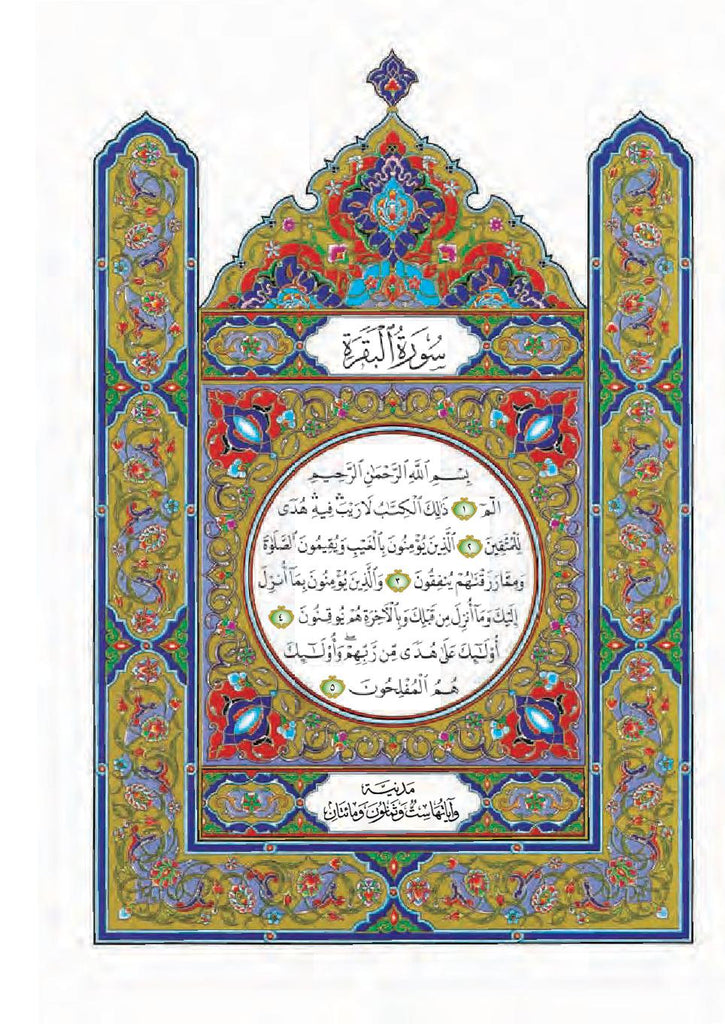 سُورَةُ ٱلْبَقَرَةِ
بِسْمِ ٱللَّهِ ٱلرَّحْمَٰنِ ٱلرَّحِيمِ
الٓمٓ ١ ذَٰلِكَ ٱلْكِتَٰبُ لَا رَيْبَ ۛ فِيهِ ۛ هُدًى
لِّلْمُتَّقِينَ ٢ ٱلَّذِينَ يُؤْمِنُونَ بِٱلْغَيْبِ وَيُقِيمُونَ ٱلصَّلَوٰةَ
وَمِمَّا رَزَقْنَٰهُمْ يُنفِقُونَ ٣ وَٱلَّذِينَ يُؤْمِنُونَ بِمَآ أُنزِلَ
إِلَيْكَ وَمَآ أُنزِلَ مِن قَبْلِكَ وَبِٱلْأَخِرَةِ هُمْ يُوقِنُونَ ٤
أُو۟لَٰٓئِكَ عَلَىٰ هُدًى مِّن رَّبِّهِمْ ۖ وَأُو۟لَٰٓئِكَ
هُمُ ٱلْمُفْلِحُونَ ٥
مَدَنِيَّة
وَآيَاتُهَا سِتٌّ وَثَمَانُونَ وَمِائَتَانِ